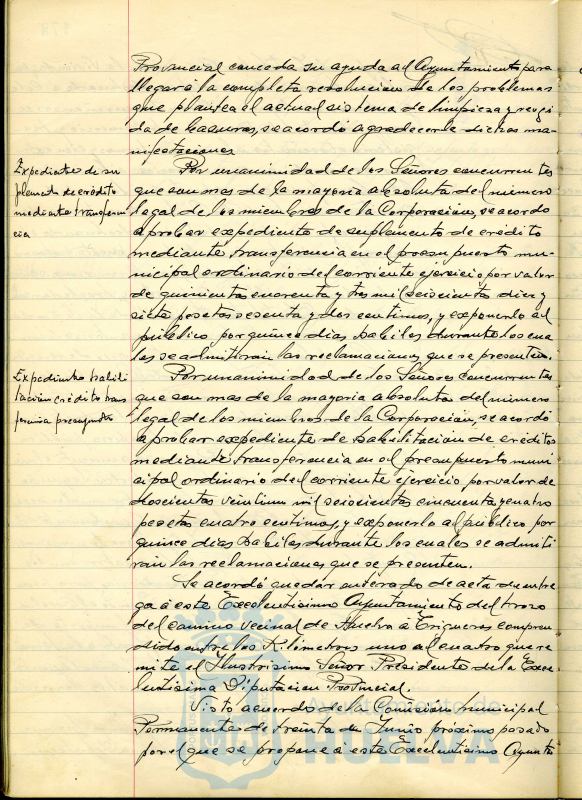 Provincial conceda su ayuda al Ayuntamiento para
llegar a la completa resolución de los problemas
que plantea el actual sistema de limpieza y recogi
da de basuras, se acordó agradecerle dichas ma-
nifestaciones
Expediente de su
plemento de crédito
mediante transferen
cia
Por unanimidad de los Señores concurrentes
que son mas de la mayoria absoluta del número
legal de los miembros de la Corporación, se acordo
aprobar expediente de suplemento de crédito
mediante transferencia en el presupuesto mu-
nicipal ordinario del corriente ejercicio por valor
de quinientas cuarenta y tres mil seiscientas diez y
siete pesetas sesenta y dos centimos, y exponerlo al
público por quince dias habiles durante los cua
les se admitirán las reclamaciones que se presenten.
Expediente habili
tación crédito trans
ferencia presupuesto
Por unanimidad de los Señores concurrentes
que son mas de la mayoria absoluta del número
legal de los miembros de la Corporación, se acordó
aprobar expediente de habilitación de creditos
mediante transferencia en el presupuesto muni
cipal ordinario del corriente ejercicio por valor de
doscientas veintiun mil seiscientas cincuenta y cuatro
pesetas cuatro centimos, y exponerlo al público por
quince dias habiles durante los cuales se admiti
rán las reclamaciones que se presenten.
Se acordó quedar enterado de acta de entre
ga á este Excelentisimo Ayuntamiento del trozo
del camino vecinal de Huelva á Trigueros compren
dido entre los Kilimetros uno al cuatro que re
mite el Ilustrisimo Señor Presidente de la Exce
lentisima Diputacion Provincial.
Visto acuerdo de la Comisión Municipal
Permanente de treinta de Junio próximo pasado
por el que se propone á este Excelentisimo Ayunta
Ayuntamiento de
HUELVA